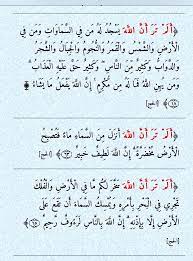 ﴿أَلَمْ تَرَ أَنَّ اللَّهَ يَسْجُدُ لَهُ مَن فِي السَّمَاوَاتِ وَمَن فِي
الْأَرْضِ وَالشَّمْسُ وَالْقَمَرُ وَالنُّجُومُ وَالْجِبَالُ وَالشَّجَرُ
وَالدَّوَابُّ وَكَثِيرٌ مِّنَ النَّاسِ ۖ وَكَثِيرٌ حَقَّ عَلَيْهِ الْعَذَابُ ۗ
وَمَن يُهِنِ اللَّهُ فَمَا لَهُ مِن مُّكْرِمٍ ۚ إِنَّ اللَّهَ يَفْعَلُ مَا يَشَاءُ ۩
﴿١٨﴾ [الحج]
﴿أَلَمْ تَرَ أَنَّ اللَّهَ أَنزَلَ مِنَ السَّمَاءِ مَاءً فَتُصْبِحُ
الْأَرْضُ مُخْضَرَّةً ۗ إِنَّ اللَّهَ لَطِيفٌ خَبِيرٌ ﴿٦٣﴾ [الحج]
﴿أَلَمْ تَرَ أَنَّ اللَّهَ سَخَّرَ لَكُم مَّا فِي الْأَرْضِ وَالْفُلْكَ
تَجْرِي فِي الْبَحْرِ بِأَمْرِهِ وَيُمْسِكُ السَّمَاءَ أَن تَقَعَ عَلَى
الْأَرْضِ إِلَّا بِإِذْنِهِ ۗ إِنَّ اللَّهَ بِالنَّاسِ لَرَءُوفٌ رَّحِيمٌ ﴿٦٥﴾
[الحج]